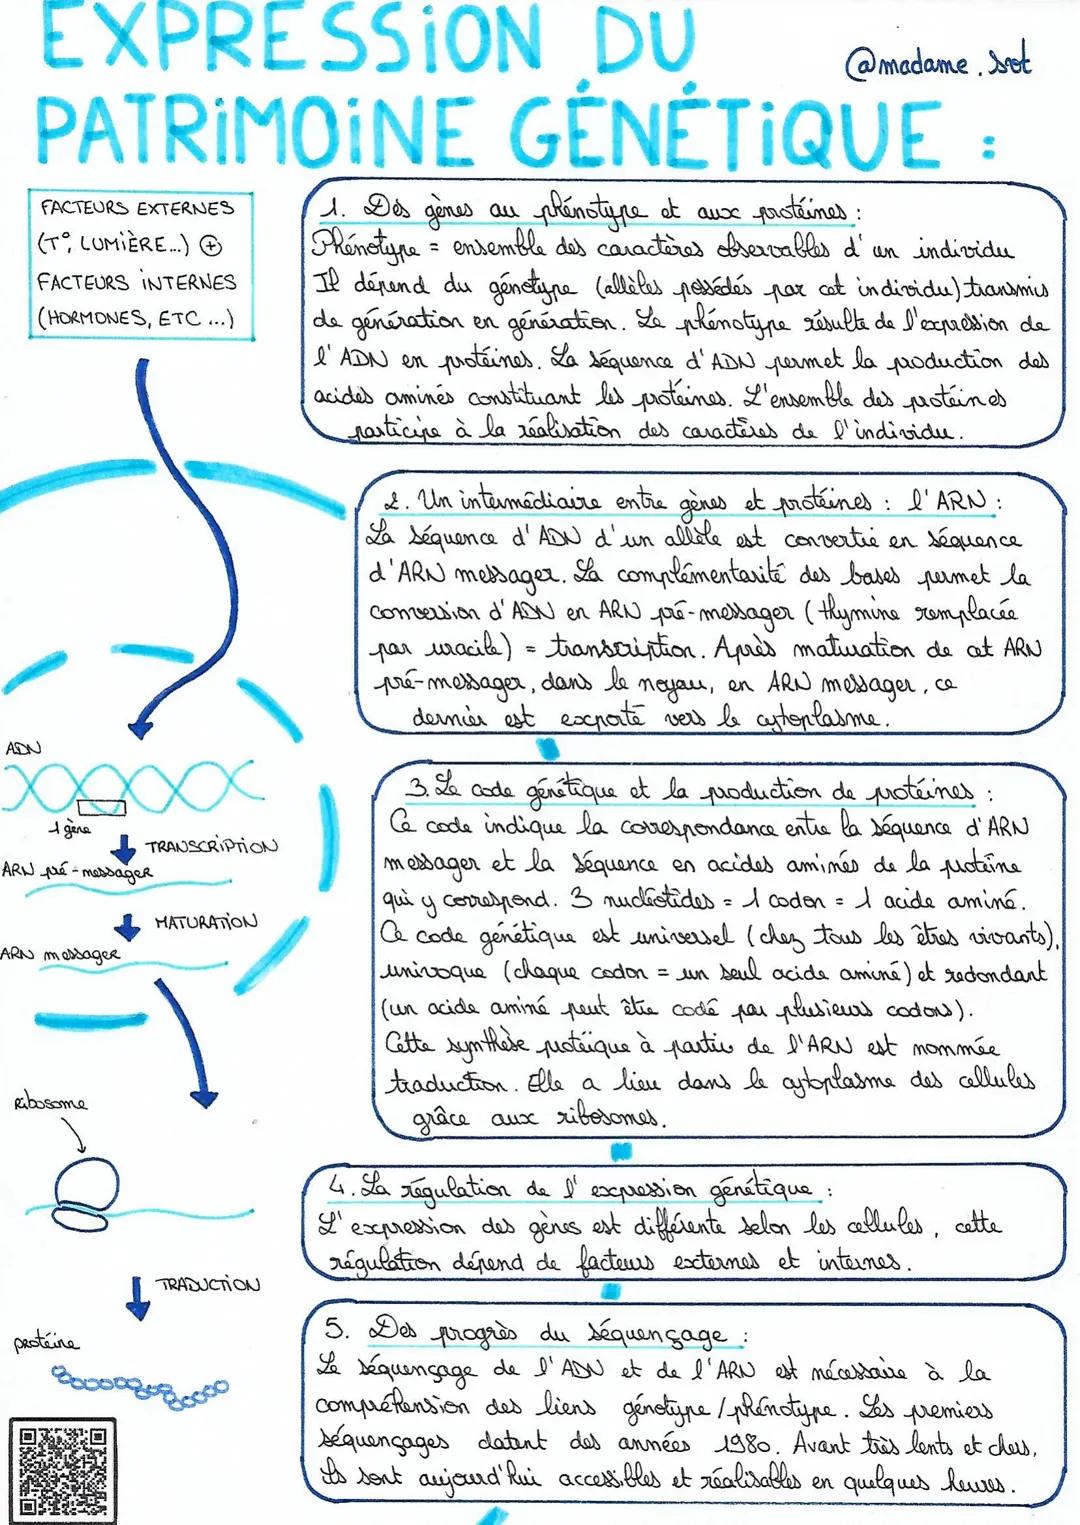 EXPRESSION DU
@madame.svt
PATRIMOINE GÉNÉTIQUE :
FACTEURS EXTERNES
(T°, LUMIÈRE...) +
FACTEURS INTERNES
(HORMONES, ETC ...)
1. Des gènes au phénotype et aux protéines :
Phénotype = ensemble des caractères observables d'un individu
Il dépend du génotype (allèles possédés par cet individu) transmis
de génération en génération. Le phénotype résulte de l'expression de
l'ADN en protéines. La séquence d'ADN permet la production des
acides aminés constituant les protéines. L'ensemble des protéines
participe à la réalisation des caractères de l'individu.
2. Un intermédiaire entre gènes et protéines : l'ARN :
La séquence d'ADN d'un allèle est convertie en séquence
d'ARN messager. La complémentarité des bases permet la
conversion d'ADN en ARN pré-messager (thymine remplacée
par uracile) = transcription. Après maturation de cet ARN
pré-messager, dans le noyau, en ARN messager, ce
dernier est exporté vers le cytoplasme.
ADN
1 gène
TRANSCRIPTION
ARN pré-messager
MATURATION
ARN messager
3. Le code génétique et la production de protéines :
Ce code indique la correspondance entre la séquence d'ARN
messager et la séquence en acides aminés de la protéine
qui y correspond. 3 nucléotides = 1 codon = 1 acide aminé.
Ce code génétique est universel (chez tous les êtres vivants),
univoque (chaque codon = un seul acide aminé) et redondant
(un acide aminé peut être codé par plusieurs codons).
Cette synthèse protéique à partir de l'ARN est nommée
traduction. Elle a lieu dans le cytoplasme des cellules
grâce aux ribosomes.
Ribosome
TRADUCTION
protéine
4. La régulation de l'expression génétique :
L'expression des gènes est différente selon les cellules, cette
régulation dépend de facteurs externes et internes.
5. Des progrès du séquençage :
Le séquençage de l'ADN et de l'ARN est nécessaire à la
compréhension des liens génotype/phénotype. Les premiers
séquençages datent des années 1980. Avant très lents et chers,
ils sont aujourd'hui accessibles et réalisables en quelques heures.